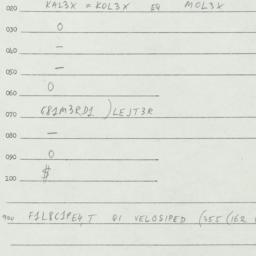 020 KAL3X = KOL3X EQ MOL3X
030 0
040 —
050 —
060 0
070 G81M3RD1 ) LEJT3R
080 —
090 0
100 $
900 F1L8C1PE4,T Q1 VELOSIPED (355 (162